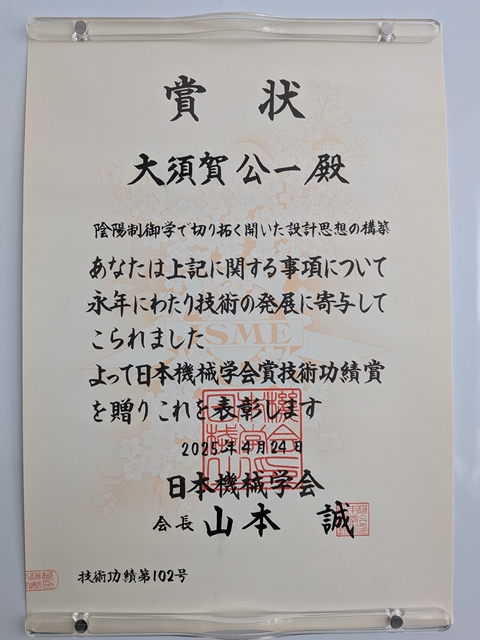 賞 状
大須賀公一殿
陰陽制御学で切り拓く開いた設計思想の構築
あなたは上記に関する事項について
永年にわたり技術の発展に寄与して
こられました
JSME
よって日本機械学会賞技術功績賞
を贈りこれを表彰します
2025年4月24日
日本機械学会
会長 山本 誠
技術功績第102号